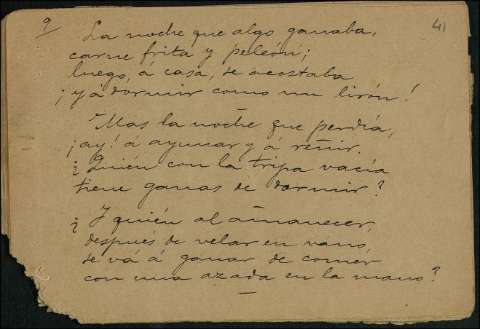 9
41
La noche que algo ganaba,
carne frita y peleón;
luego, á casa, se acostaba
¡y á dormir como un lirón!
Mas la noche que perdía,
¡ay! á ayunar y á reñir.
¿Quién con la tripa vacía
tiene ganas de dormir?
¿Y quién al amanecer,
después de velar en vano,
se vá á ganar de comer
con una azada en la mano?